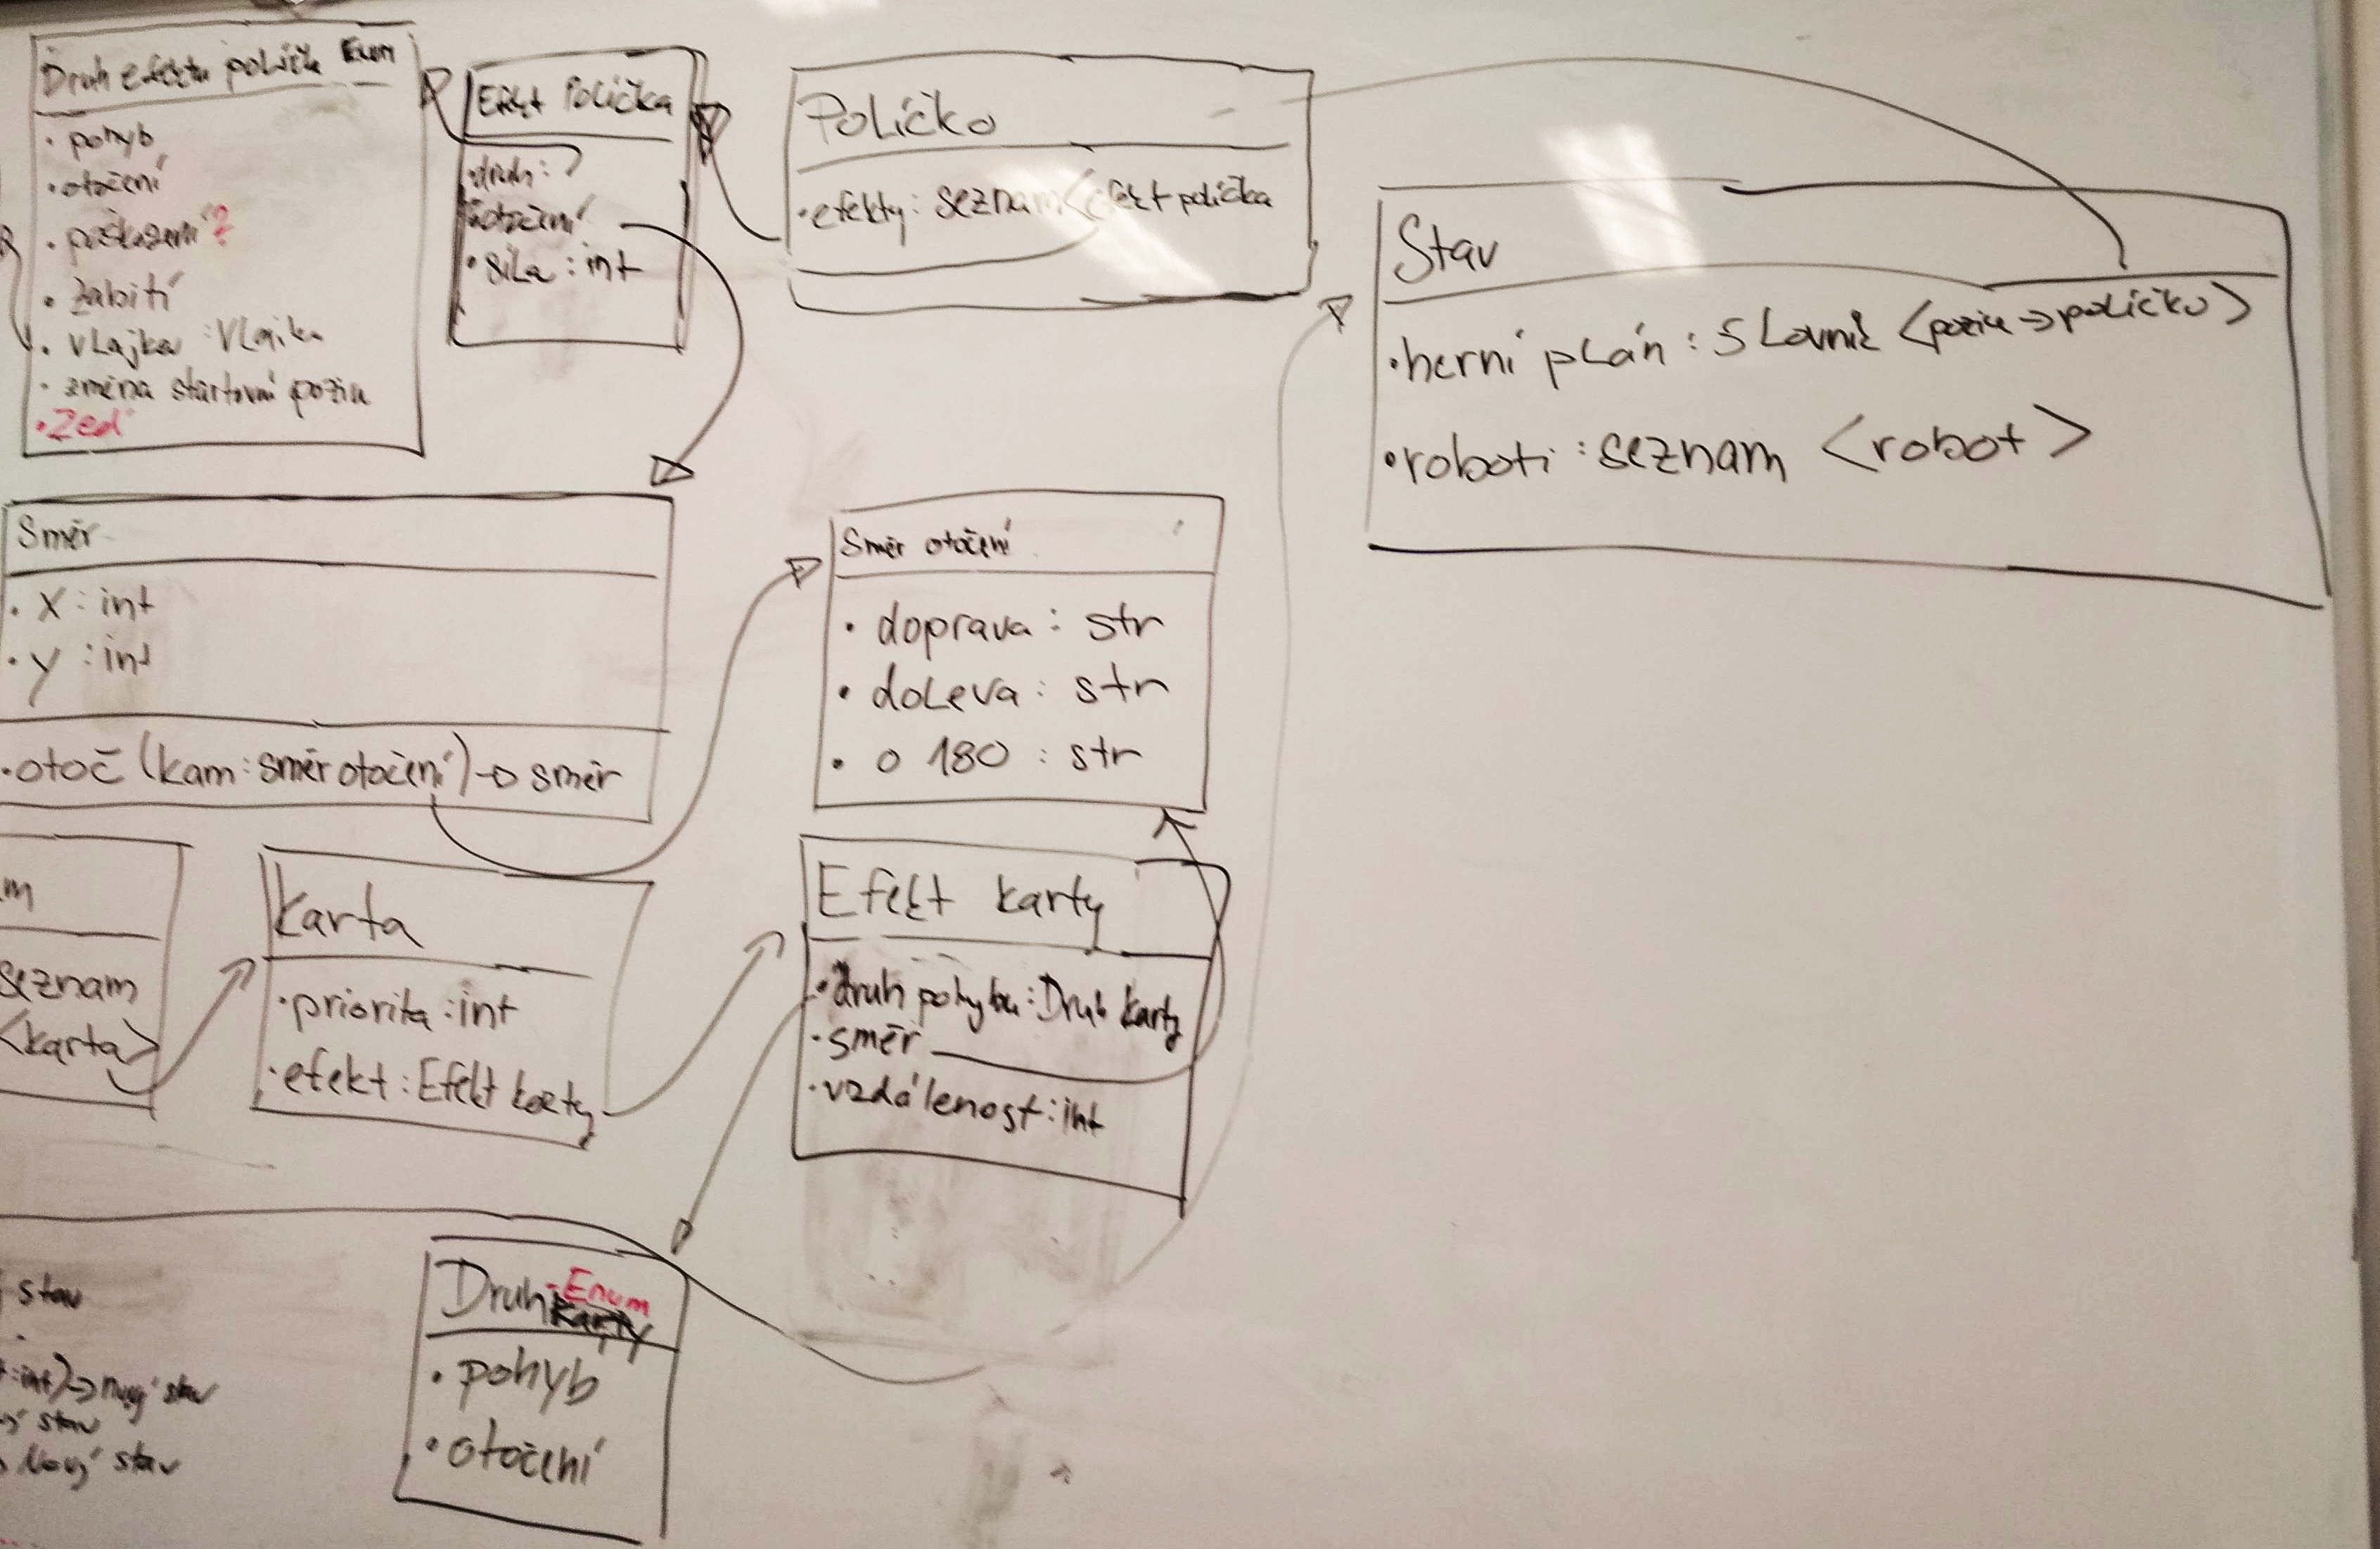 Druh efektu políčka Enum
• pohyb
• otočení
• poškození ?
• zabití
• vlajka : Vlajka
• změna startovní pozice
• Zeď
Efekt Políčka
• druh:
otočení
• síla : int
Políčko
• efekty: seznam <efekt políčka
Stav
• herní plán : Slovník <pozice → políčko>
• roboti : seznam <robot>
Směr
• X : int
• y : int
• otoč (kam : směr otočení) → směr
Směr otočení
• doprava : str
• doleva : str
• o 180 : str
seznam
<karta>
Karta
• priorita : int
• efekt : Efekt karty
Efekt karty
• druh pohybu : Druh karty
• směr
• vzdálenost : int
Druh-Enum
• pohyb
• otočení
stav
: int) → nový stav
stav
Nový stav